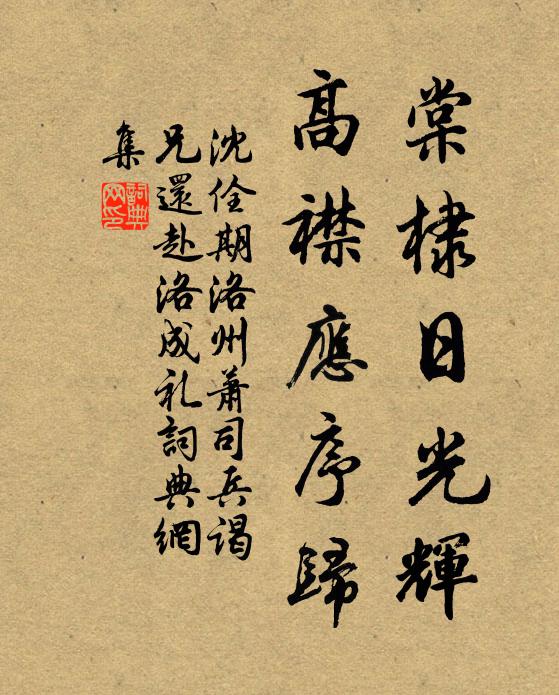 棠棣日光輝
高襟應序歸
沈佺期洛州蕭司兵谒
兄還赴洛成礼詞典網
集
詞典
网印